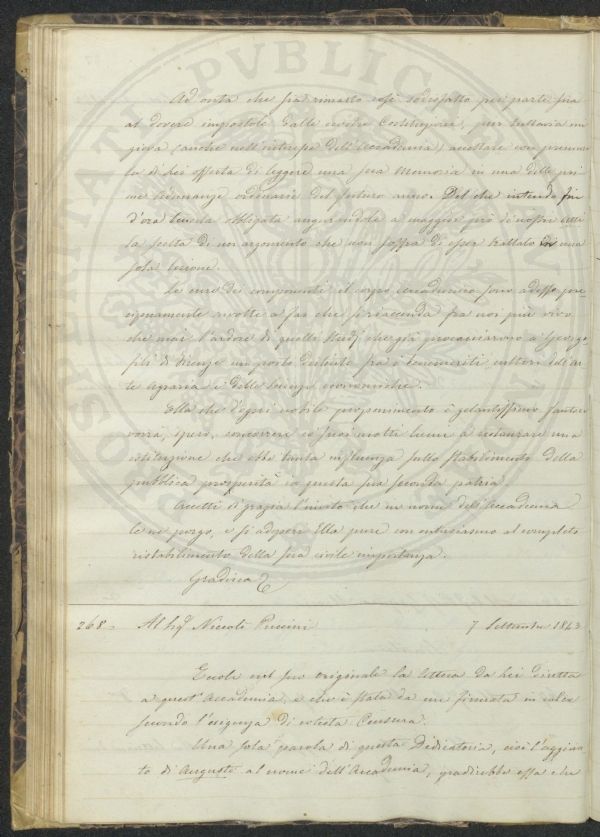 Ad onta che sia rimasto così sodisfatto per parte sua
al dovere impostole dalle nostre Costituzioni, pur tuttavia mi
giova (anche nell'interesse dell'Accademia) accettare con premu
ra di Lei offerta di leggere una sua Memoria in una delle pri
me Adunanze ordinarie del futuro anno. Del che intenda fin
d'ora tenerla obbligata augurandole a maggior prò di nostri Atti
la scelta di un argomento che non soffra di esser trattato in una
sola lezione.
Le cure dei componenti il corpo Accademico sono adesso pre
cipuamente rivolte a far che si riaccenda fra noi più vivo
che mai l'ardore di quelli studj che già procacciarono a' Georgo
fili di Firenze un posto distinto fra i benemeriti cultori dell'ar
te agraria e delle scienze economiche.
Ella che d'ogni nobile proponimento è zelantissimo fautore
vorrà, spero, concorrere co' suoi molti lumi a restaurare una
istituzione che ebbe tanta influenza sullo stabilimento della
pubblica prosperità in questa sua seconda patria.
Accetti di grazia l'invito che in nome dell'Accademia
le ne porgo, e si adoperi Ella pure con entusiasmo al completo
ristabilimento della sua civile importanza.
Gradisca &
268= Al Sigr Niccolò Puccini 7 Settembre 1843
Eccole nel suo originale la lettera da Lei diretta
a quest'Accademia, e che è stata da me firmata in calce
secondo l'esigenza di cotesta Censura.
Una sola parola di questa Dedicatoria, cioè l'aggiun
to di Augusta al nome dell'Accademia, gradirebbe essa che